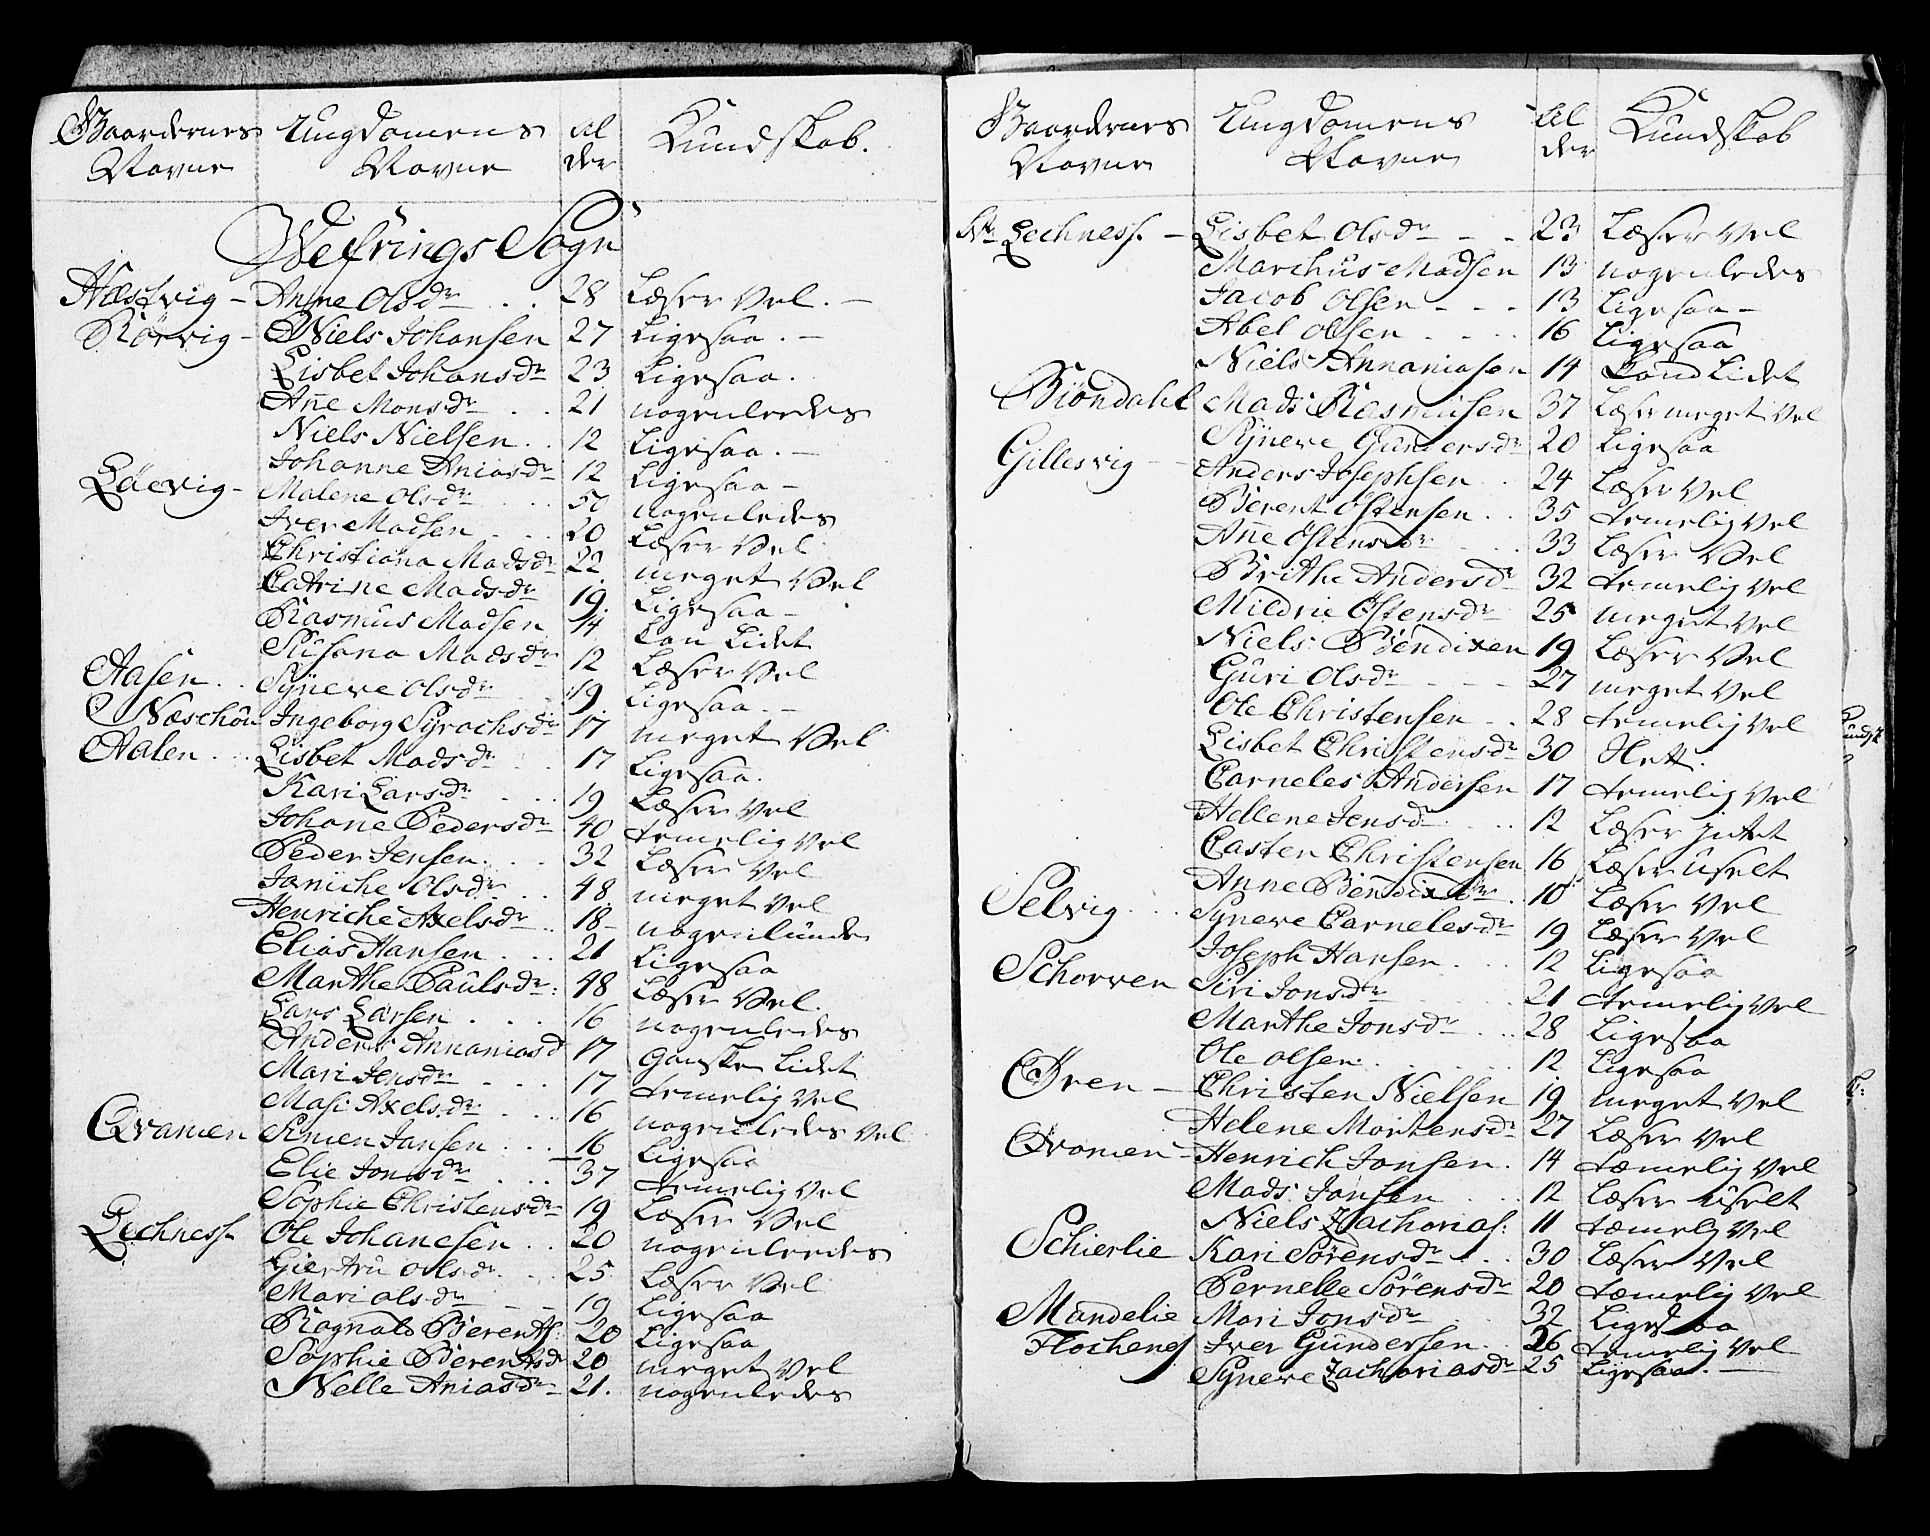 Gaardernes Navne | Ungdomens Navne | Al der | Kundskab.
Wefrings Sogn
Næstvig - Anne Olsdr 28 Læser Vel.
Rörvig - Niels Johansen 27 Ligesaa.
Lisbet Johansdr 23 Ligesaa.
Añe Monsdr 21 nogenleedes
Niels Nielsen 12 Ligesaa.
Johanne Aniasdr 12 Ligesaa
Malene Olsdr 50 nogenledes
Iver Madsen 20 Læser Vel
Christiana Madsdr 22 meget Vel
Catrine Madsdr 19 Ligesaa
Rasmus Madsen 14 kan Lidet
Susana Madsdr 12 Læser Vel
Aasen Syneve Olsdr 19 Ligesaa.
Ingeborg Syrachsdr 17 meget Vel
Aalen Lisbet Madsdr 17 Ligesaa.
Kari Larsdr 19 Læser Vel
Johane Pedersdr 40 temelig Vel
Peder Jensen 32 Læser Vel
Janiche Olsdr 48 meget Vel
Henriche Axelsdr 18 nogenlunde
Elias Hansen 21 Ligesaa
Marthe Paulsdr 48 Læser Vel.
Lars Larsen 16 nogenledes
Anders Annaniasd 17 Ganske Lidet
Mari Jensdr 17 temelig Vel
Masi Axelsdr 16 nogenledes Vel
Qvamen Simen Jansen 16 Ligesaa
Elie Jonsdr 37 temelig Vel
Sophie Christensdr 19 Læser Vel
Lechness Ole Johanesen 20 nogenleedes
Giertru Olsdr 25 Læser Vel
Mari Olsdr 19 Ligesaa
Ragnald Berents: 20 Ligesaa
Sophie Berentsdr 20 meget Vel
Nelle Aniasdr 21. nogenledes
Gaardernes Navne | Ungdomens Navne | Al der | Kundskab
Lechness. - Lisbet Olsdr 23 Læser Vel
Marchus Madsen 13 nogenledes
Jacob Olsen 13 Ligesaa
Abel Olsen 16 Ligesaa
Niels Annaniasen 14 Lidet
Biöndahl Mads Rasmusen 37 Læser meget Vel
Gillesvig Syneve Gundersdr 20 Ligesaa
Anders Josephsen 24 Læser Vel
Berent Östensen 35 temelig Vel
Añe Östensdr 33 Læser Vel
Brithe Andersdr 32 temelig Vel
Mildrie Östensdr 25 meget Vel
Niels Bendixen 19 Læser Vel
Guri Olsdr 27 meget Vel
Ole Christensen 28 temelig Vel
Lisbet Christensdr 30 Slett.
Carneles Andersen 17 temelig Vel
Hellene Jensdr 12 Læser intet
Casten Christensen 16 Læser Uselt
Anne Bendixdr 10 Læser Vel
Selvig Syneve Carnelesdr 19 Læser Vel
Joseph Hansen 12 Ligesaa
Schorven Siri Jonsdr 21 temelig Vel
Marthe Jonsdr 28 Ligesaa
Ole Olsen 12 Ligesaa
Øren - Christen Nielsen 19 meget Vel
Helene Mortensdr 27 Læser Vel
Qvamen - Henrich Jansen 14 tæmelig Vel
Mads Jansen 12 Læser Uselt
Niels Zacharias: 11 tæmelig Vel
Schierlie Kari Sörensdr 30 Læser Vel
Pernelle Sörensdr 20 tæmelig Vel
Mandelie Mari Jonsdr 32 Ligesaa
Flochenes Iver Gundersen 26 temelig Vel
Syneve Zachariasdr 25 Ligesaa.